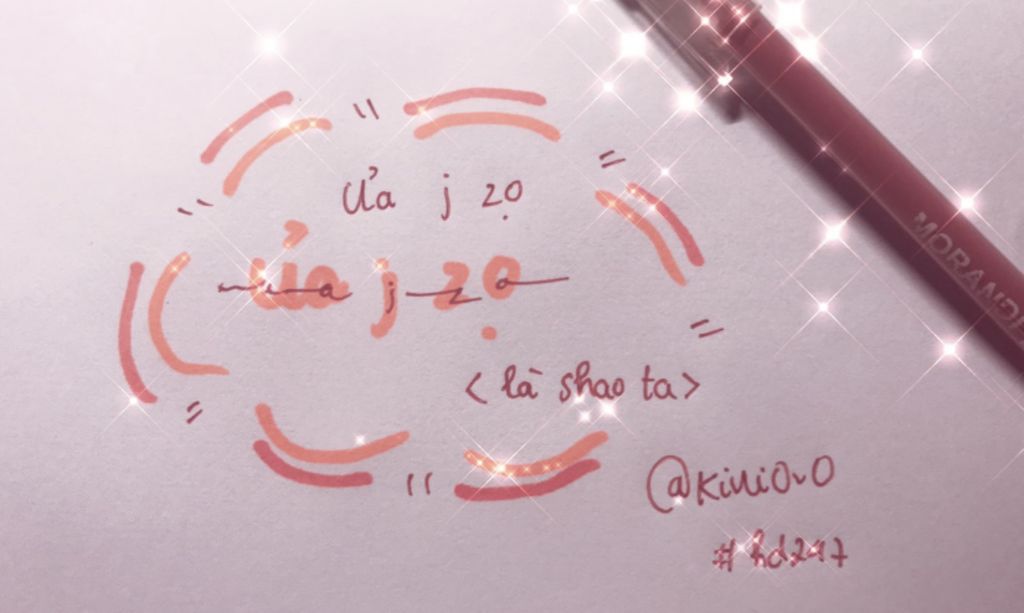 Ủa j zọ
Ủa j zọ
< là shao ta >
@KiwiOvO
#hd247
MORANDI